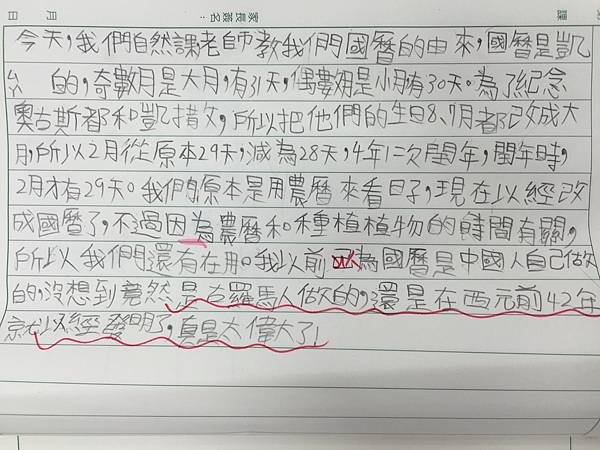 課
家長簽名：
月
今天，我們自然課老師教我們國曆的由來，國曆是凱
ㄙㄚ的，奇數月是大月，有31天，偶數月是小月有30天。為了紀念
奧古斯都和凱撒，所以把他們的生日8、7月都改成大
月，所以2月從原本29天，減為28天，4年1次閏年，閏年時，
2月才有29天。我們原本是用農曆來看日子，現在以經改
成國曆了，不過因為農曆和種植植物的時間有關，
所以我們還有在用。我以前以為國曆是中國人自己做
的，沒想到竟然是古羅馬人做的，還是在西元前42年
就以經發明了，真是太偉大了！